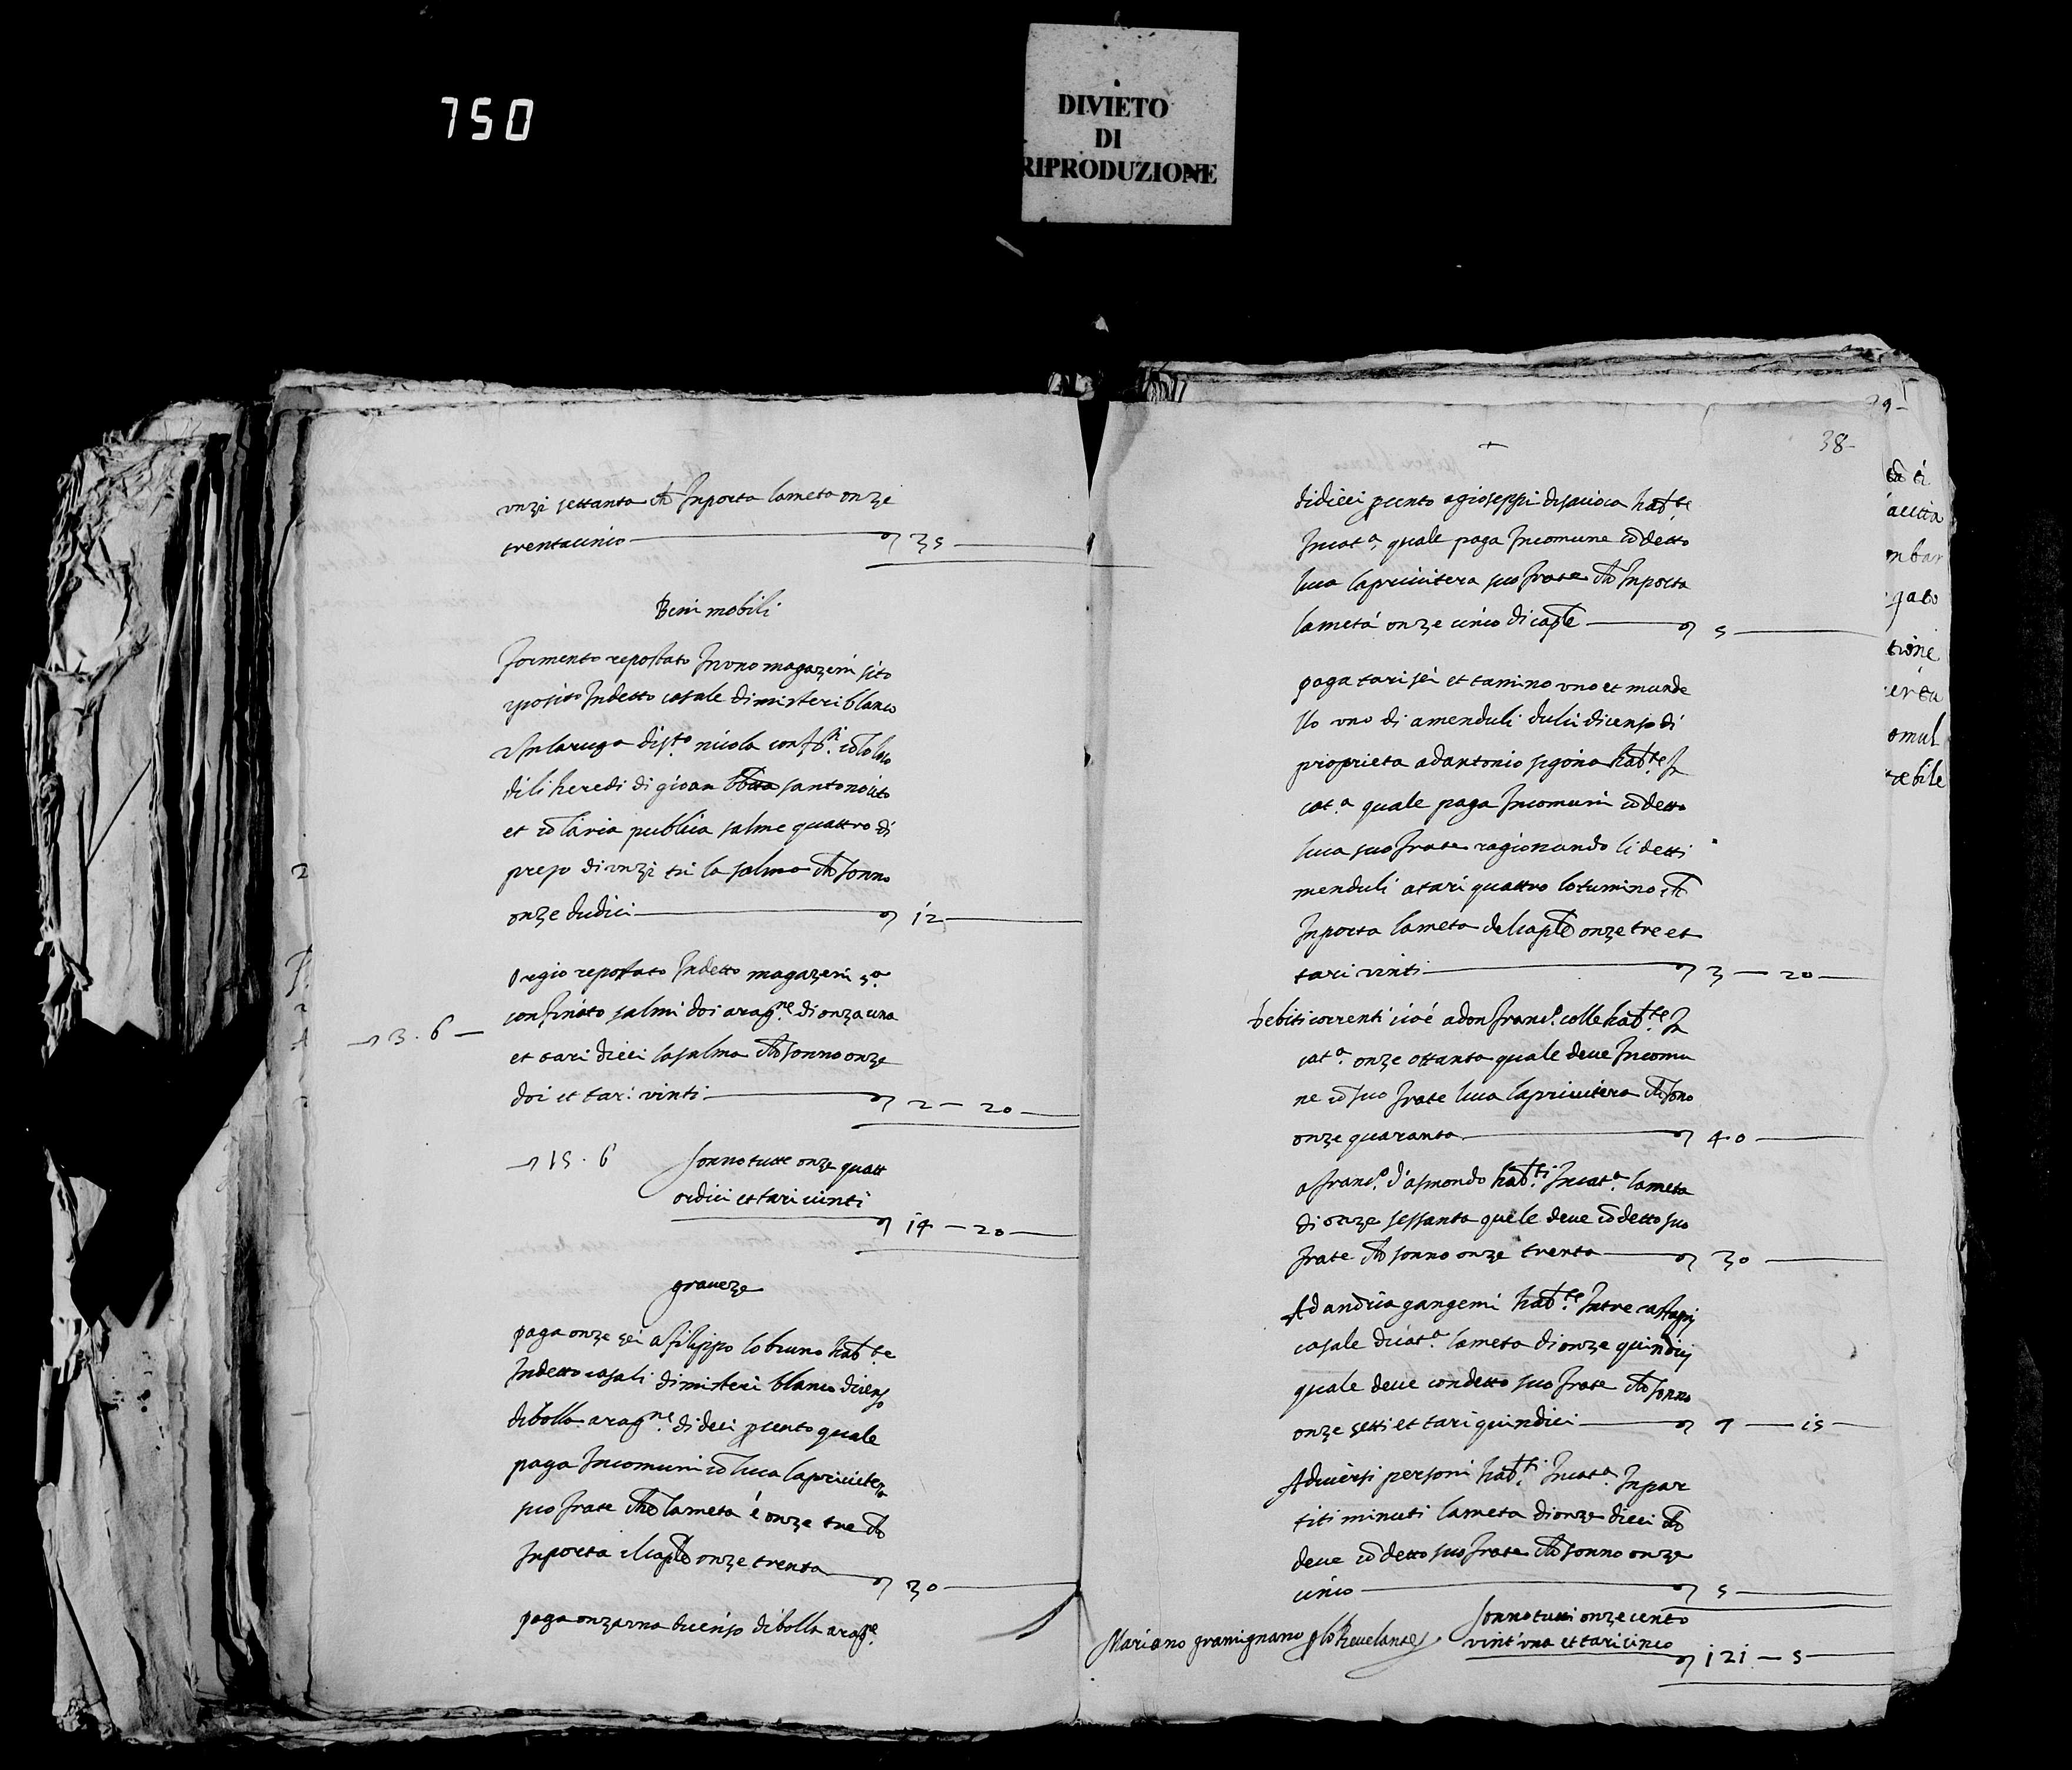 750
DIVIETO
DI
RIPRODUZIONE
onzi settanta che Inporta lameta onze
trentacinco 35
Beni mobili
formento repostato Inuno magazeni sito
et posito Indetto casale dimisteri blanco
et Inlaruga di sto nicola conf.ti co lo loco
dili heredi di gioan santonocito
et co lavia publica salme quattro di
prezo di unzi tri la salma che sonno
onze dudici 12
orgio repostato Indetto magazeni
confinato salmi doi arag.ne di onza una
3.6
et tari dieci lasalma che sonno onze
doi et tari vinti 2-20
15.6
sonno tutte onze quatt
ordici et tari vinti
14-20
graueze
paga onze sei a filippo lo bruno hab.te
Indetto casali dimisteri blanco dicenso
dibolla arag.ne dideci p cento quale
paga Incomuni co luca lapriuitera
suo frate che lameta é onze tre che
Inporta ilcap.le onze trenta 30
paga onza una dicenso dibolla arag.ne
29-
38-
didieci p cento a gioseppi hab.te
Incat.a quale paga Incomune co detto
luca lapriuitera suo frate che Inporta
lametá onze cinco dicap.le 5
paga tari sei et tumino uno et munde
llo uno di amenduli dulci dicenso di
proprieta ad antonio sigona hab.te In
cat.a quale paga Incomuni co detto
luca suo frate ragionando li detti
menduli a tari quattro lo tumino che
Inporta lameta delcap.le onze tre et
tari vinti 3-20
debiti correnti cioé a don franc.o colle hab.te In
cat.a onze ottanta quale deue Incomu
ne co suo frate luca lapriuitera che sono
onze quaranta 40
a franc.o d'asmondo hab.ti Incat.a lameta
di onze sessanta quale deue co detto suo
frate che sonno onze trenta 30
Ad andria gangemi hab.te Intre castagni
casale dicat.a lameta di onze quindici
quale deue condetto suo frate che sonno
onze setti et tari quindici 7-15
Adiuersi personi hab.ti Incat.a Inpar
titi minuti lameta dionze dieci che
deue co detto suo frate che sonno onze
cinco 5
sonno tutti onze cento
vint'una et tari cinco
121-5
Mariano gramignano p lo Reuelante